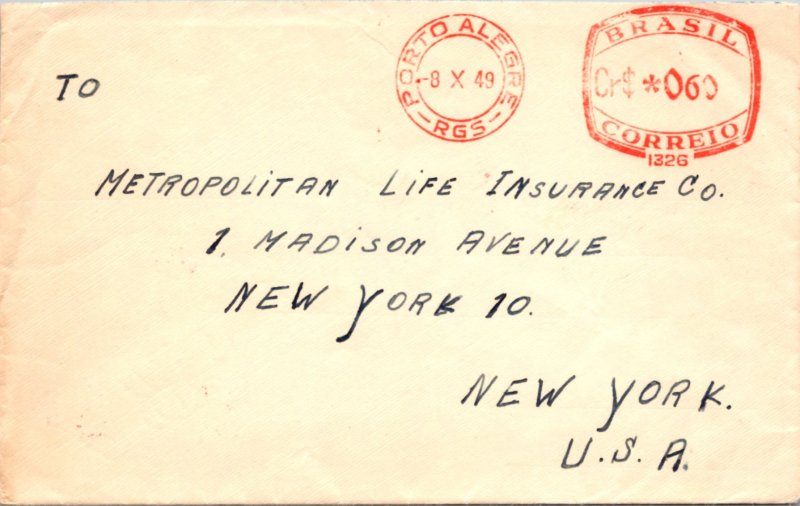 PORTO ALEGRE
-8 X 49
-RGS-
BRASIL
Cr$ *060
CORREIO
1326
TO
METROPOLITAN LIFE INSURANCE CO.
1. MADISON AVENUE
NEW YORK 10.
NEW YORK.
U.S.A.